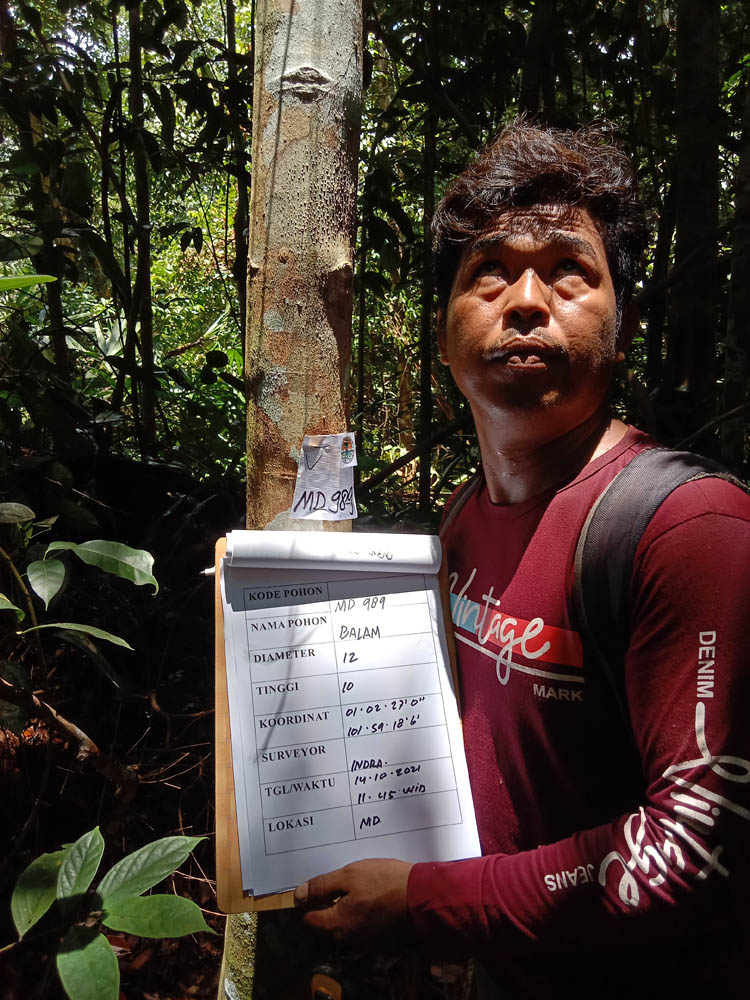 MD 989
KODE POHON MD 989
NAMA POHON BALAM
DIAMETER 12
TINGGI 10
KOORDINAT 01·02·27'0"
101·59·18'6'
SURVEYOR INDRA.
TGL/WAKTU 14·10·2021
11·45 WIB
LOKASI MD
Vintage
MARK
DENIM
Vintage
JEANS